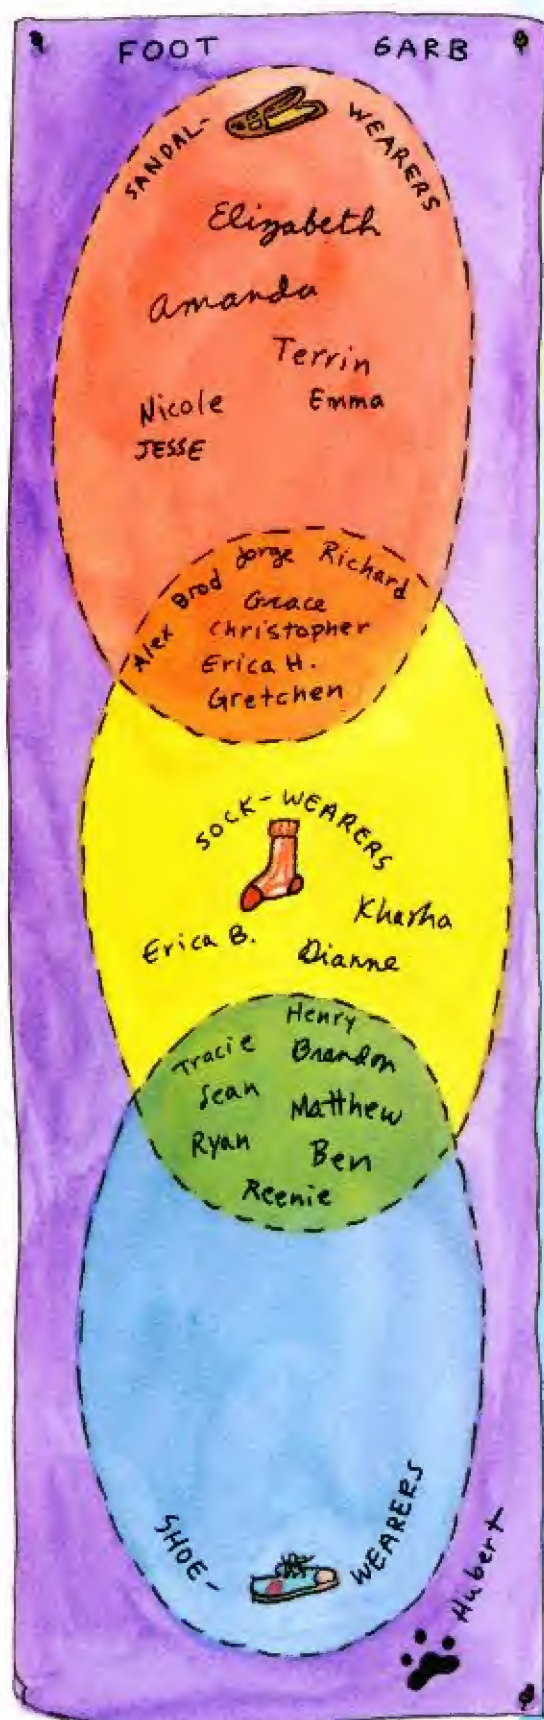 FOOT GARB
SANDAL-WEARERS
Elizabeth
Amanda
Terrin
Nicole Emma
JESSE
Alex Brad Jorge Richard
Grace
Christopher
Erica H.
Gretchen
SOCK-WEARERS
Kharha
Erica B. Dianne
Henry
Tracie Brandon
Sean Matthew
Ryan Ben
Reenie
SHOE-WEARERS
Hubert